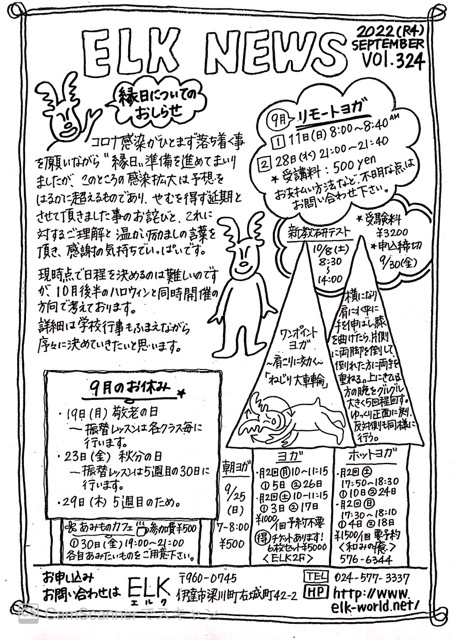 ELK NEWS
2022(R4)
SEPTEMBER
VOL.324
縁日についての
おしらせ
コロナ感染がひとまず落ち着く事
を願いながら"縁日"準備を進めてまいり
ましたが、このところの感染拡大は予想を
はるかに超えるものであり、やむを得ず延期と
させて頂きました事のお詫びと、これに
対するご理解と温かい励ましの言葉を
頂き、感謝の気持ちでいっぱいです。
現時点で日程を決めるのは難しいのです
が、10月後半のハロウィンと同時開催の
方向で考えております。
詳細は学校行事もふまえながら
序々に決めていきたいと思います。
9月 リモートヨガ
1 11日(日) 8:00~8:40AM
2 28日(水) 21:00~21:40
* 受講料:500yen
お支払い方法など、不明な点は
お問い合わせ下さい。
新教研テスト
10/8(土)
8:30
~
14:00
*受験料
¥3200
*申込締切
9/30(金)
ワンポイント
ヨガ
~肩こりに効く~
「ねじり大車輪」
横になり
肩に水平に
手を伸ばし膝
を曲げたら、片側
に両脚を倒して
倒れた方に両手を
重ねる。上にきてる
方の腕をグルグル
大きく5回程回す。
ゆっくり正面に戻り、
反対側も同様に
行う。
9月のお休み
・19日(月) 敬老の日
→振替レッスンは各クラス毎に
行います。
・23日(金) 秋分の日
→振替レッスンは5週目の30日に
行います。
・29日(木) 5週目のため。
あみものカフェ 参加費¥500
①30日(金) 19:00~21:00
各自あみたいものをご用意下さい。
朝ヨガ
9/25
(日)
7-8:00
¥500
ヨガ
・月2回(月) 10-11:15
①5日 ②26日
・月2回(土) 10-11:15
①3日 ②17日
¥1000/1回 予約不要
得 チケットあります!
6枚セット¥5000
<ELK2F>
ホットヨガ
・月2回(土)
17:50-18:30
①10日 ②24日
・月2回(日)
17:30-18:10
①4日 ②18日
¥1500/1回 要予約
<和みの癒>
576-6344
お申し込み
お問い合わせは
ELK
エルク
〒960-0745
伊達市梁川町右城町42-2
TEL 024-577-3337
HP http://www.
elk-world.net/
CamScanner